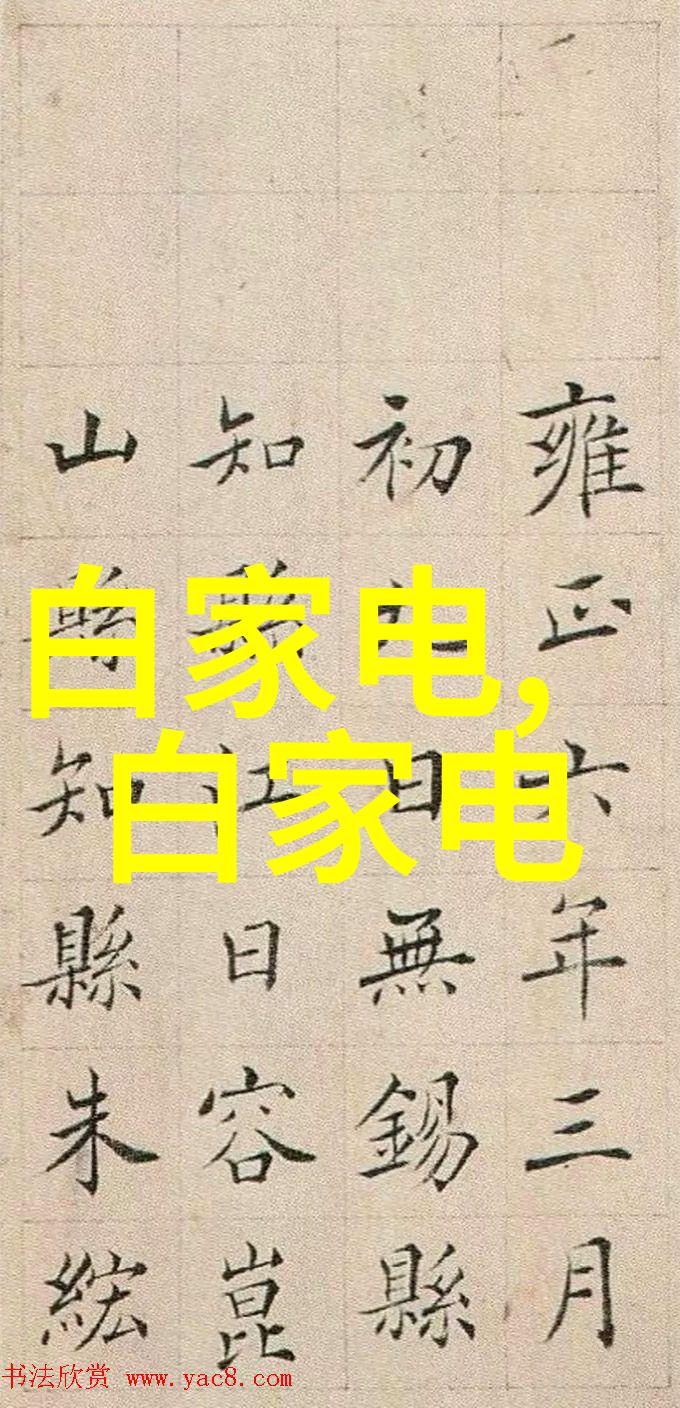 雍正六年三月
初日無錫縣
知縣江日容崑
山縣知縣朱紘
白家电,
白家电
书法欣赏 www.yac8.com